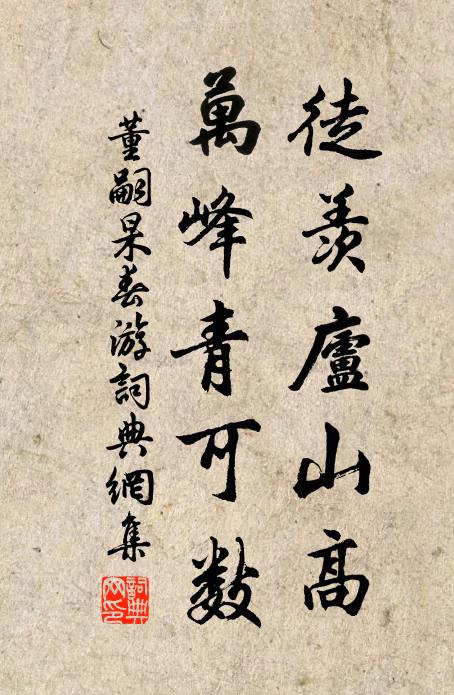 徒羨廬山高
萬峰青可数
董嗣杲春游詞典網集
詞典網印